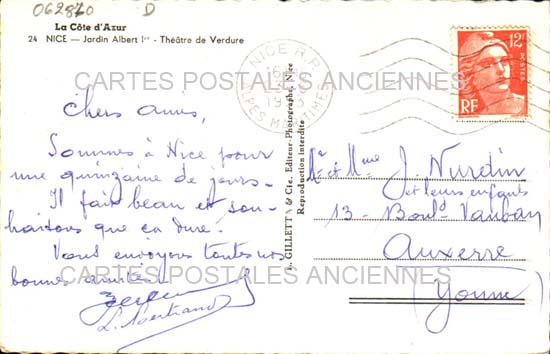 062870 D
La Côte d'Azur
24 NICE — Jardin Albert Ier - Théâtre de Verdure
NICE R.P.
ALPES MARITIMES
12F
POSTES
RF
CARTES POSTALES ANCIENNES
Chers amis,
Sommes à Nice pour
une quinzaine de jours.
Il fait beau et sou-
haitons que ça dure.
Vous envoyons toutes nos
bonnes amitiés.
L. Bertrand
GILLETTA & Cie, Editeur-Photographe, Nice
Reproduction interdite
Mr et Mme J. Nurdin
et leurs enfants
13 - Bould Vauban
Auxerre
(Yonne)
CARTES POSTALES ANCIENNES